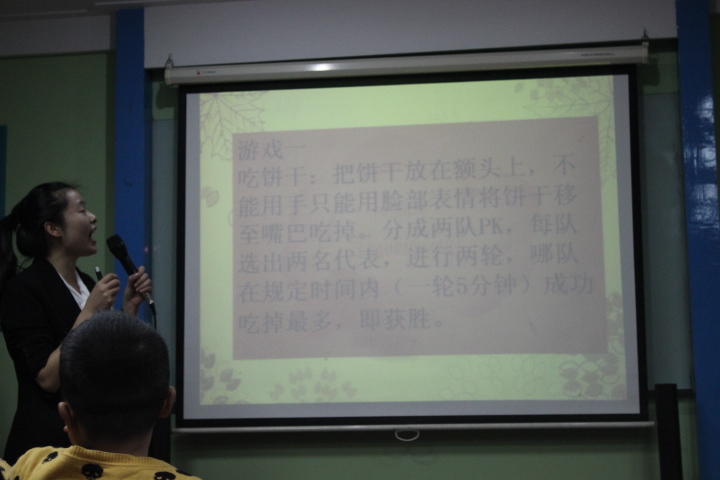 游戏一
吃饼干：把饼干放在额头上，不
能用手只能用脸部表情将饼干移
至嘴巴吃掉。分成两队PK，每队
选出两名代表，进行两轮，哪队
在规定时间内（一轮5分钟）成功
吃掉最多，即获胜。